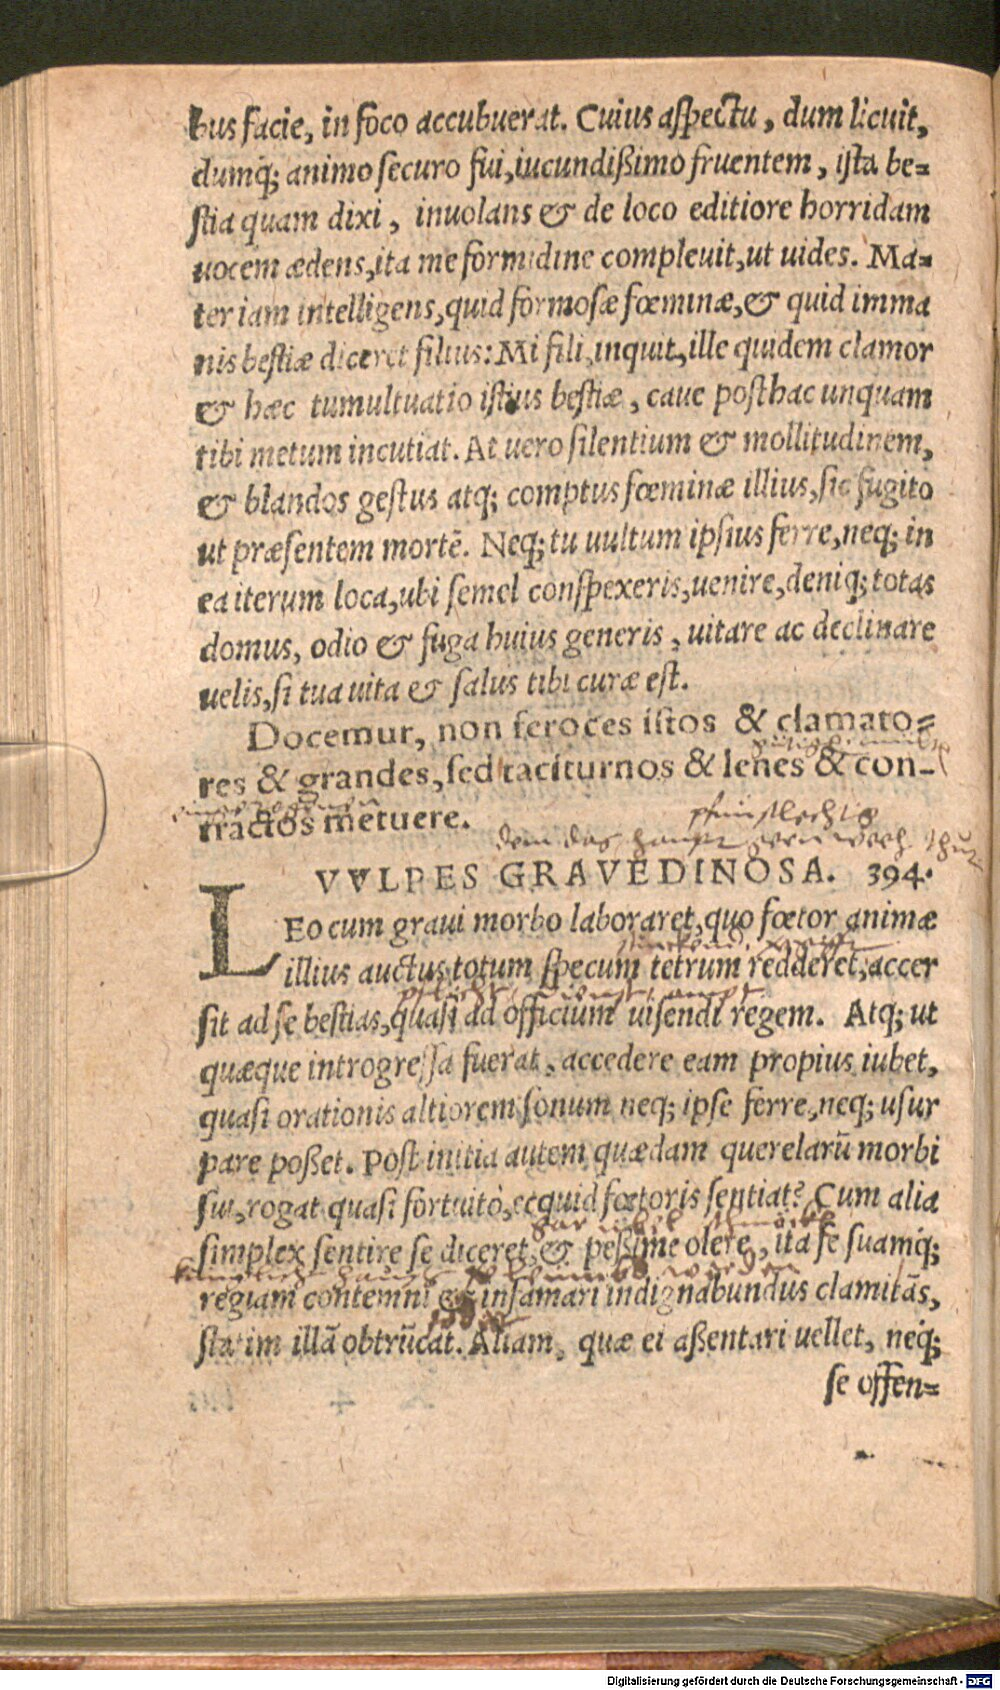 bus facie, in foco accubuerat. Cuius aspectu, dum licuit,
dumq́; animo securo fui, iucundißimo fruentem, ista be=
stia quam dixi, inuolans & de loco editiore horridam
uocem ædens, ita me formidine compleuit, ut uides. Ma=
ter iam intelligens, quid formosæ fœminæ, & quid imma
nis bestiæ diceret filius: Mi fili, inquit, ille quidem clamor
& hæc tumultuatio istius bestiæ, caue posthac unquam
tibi metum incutiat. At uero silentium & mollitudinem,
& blandos gestus atq; comptus fœminæ illius, sic fugito
ut præsentem mortē. Neq; tu uultum ipsius ferre, neq; in
ea iterum loca, ubi semel conspexeris, uenire, deniq; totas
domus, odio & fuga huius generis, uitare ac declinare
uelis, si tua uita & salus tibi curæ est.
Docemur, non feroces istos & clamato=
res & grandes, sed taciturnos & lenes & con-
tractos metuere.
dem das haupt wehe thut
VVLPES GRAVEDINOSA. 394.
LEo cum graui morbo laboraret, quo fœtor animæ
illius auctus totum specum tetrum redderet, accer
sit ad se bestias, quasi ad officium uisendi regem. Atq; ut
quæque introgressa fuerat, accedere eam propius iubet,
quasi orationis altiorem sonum neq; ipse ferre, neq; usur
pare poßet. Post initia autem quædam querelarū morbi
sui, rogat quasi fortuitò, ecquid fœtoris sentiat? Cum alia
simplex sentire se diceret, & peßime olere, ita se suamq́;
regiam contemni & infamari indignabundus clamitās,
statim illā obtrūcat. Aliam, quæ ei aßentari uellet, neq́;
se offen=
Digitalisierung gefördert durch die Deutsche Forschungsgemeinschaft - DFG